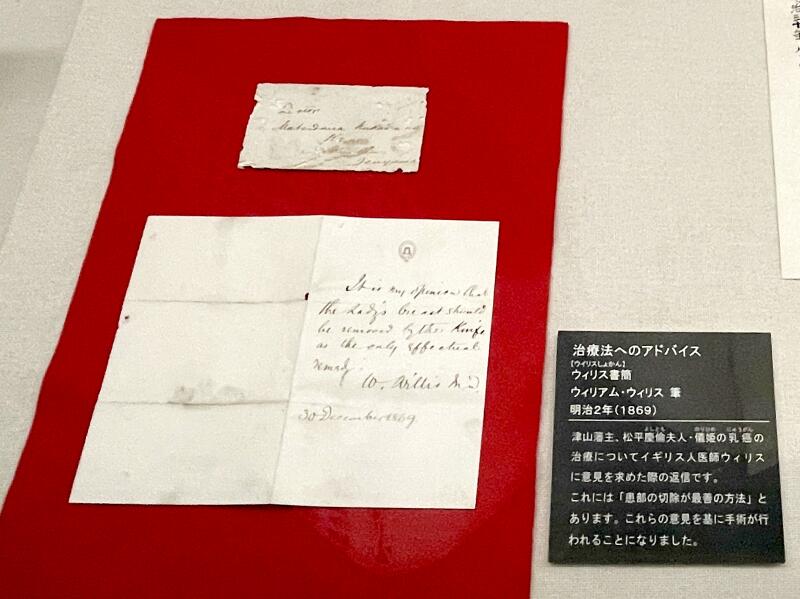 Doctor
It is my opinion that
the Lady's breast should
be removed by the Knife
as the only effectual
remedy.
W. Willis M.D.
30 December 1869.
治療法へのアドバイス
【ウイリスしょかん】
ウィリス書簡
ウィリアム・ウィリス 筆
明治2年(1869)
津山藩主、松平慶倫夫人・儀姫の乳癌の
治療についてイギリス人医師ウィリス
に意見を求めた際の返信です。
これには「患部の切除が最善の方法」と
あります。これらの意見を基に手術が行
われることになりました。